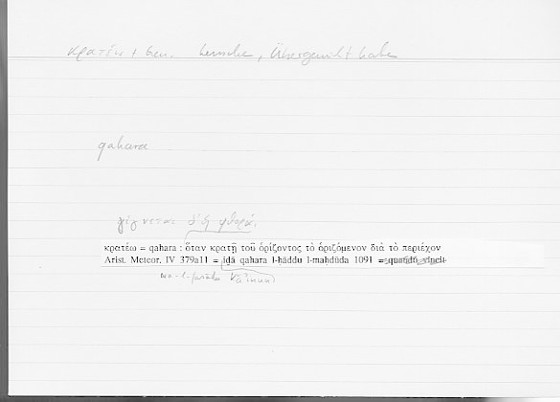 κρατέω + Gen. herrsche, Übergewicht habe
qahara
γίγνεται δ' ἡ φθορά,
κρατέω = qahara : ὅταν κρατῇ τοῦ ὁρίζοντος τὸ ὁριζόμενον διὰ τὸ περιέχον
Arist. Meteor. IV 379a11 = iḏā qahara l-ḥāddu l-maḥdūda 1091 = quando vincit
wa-l-fasādu